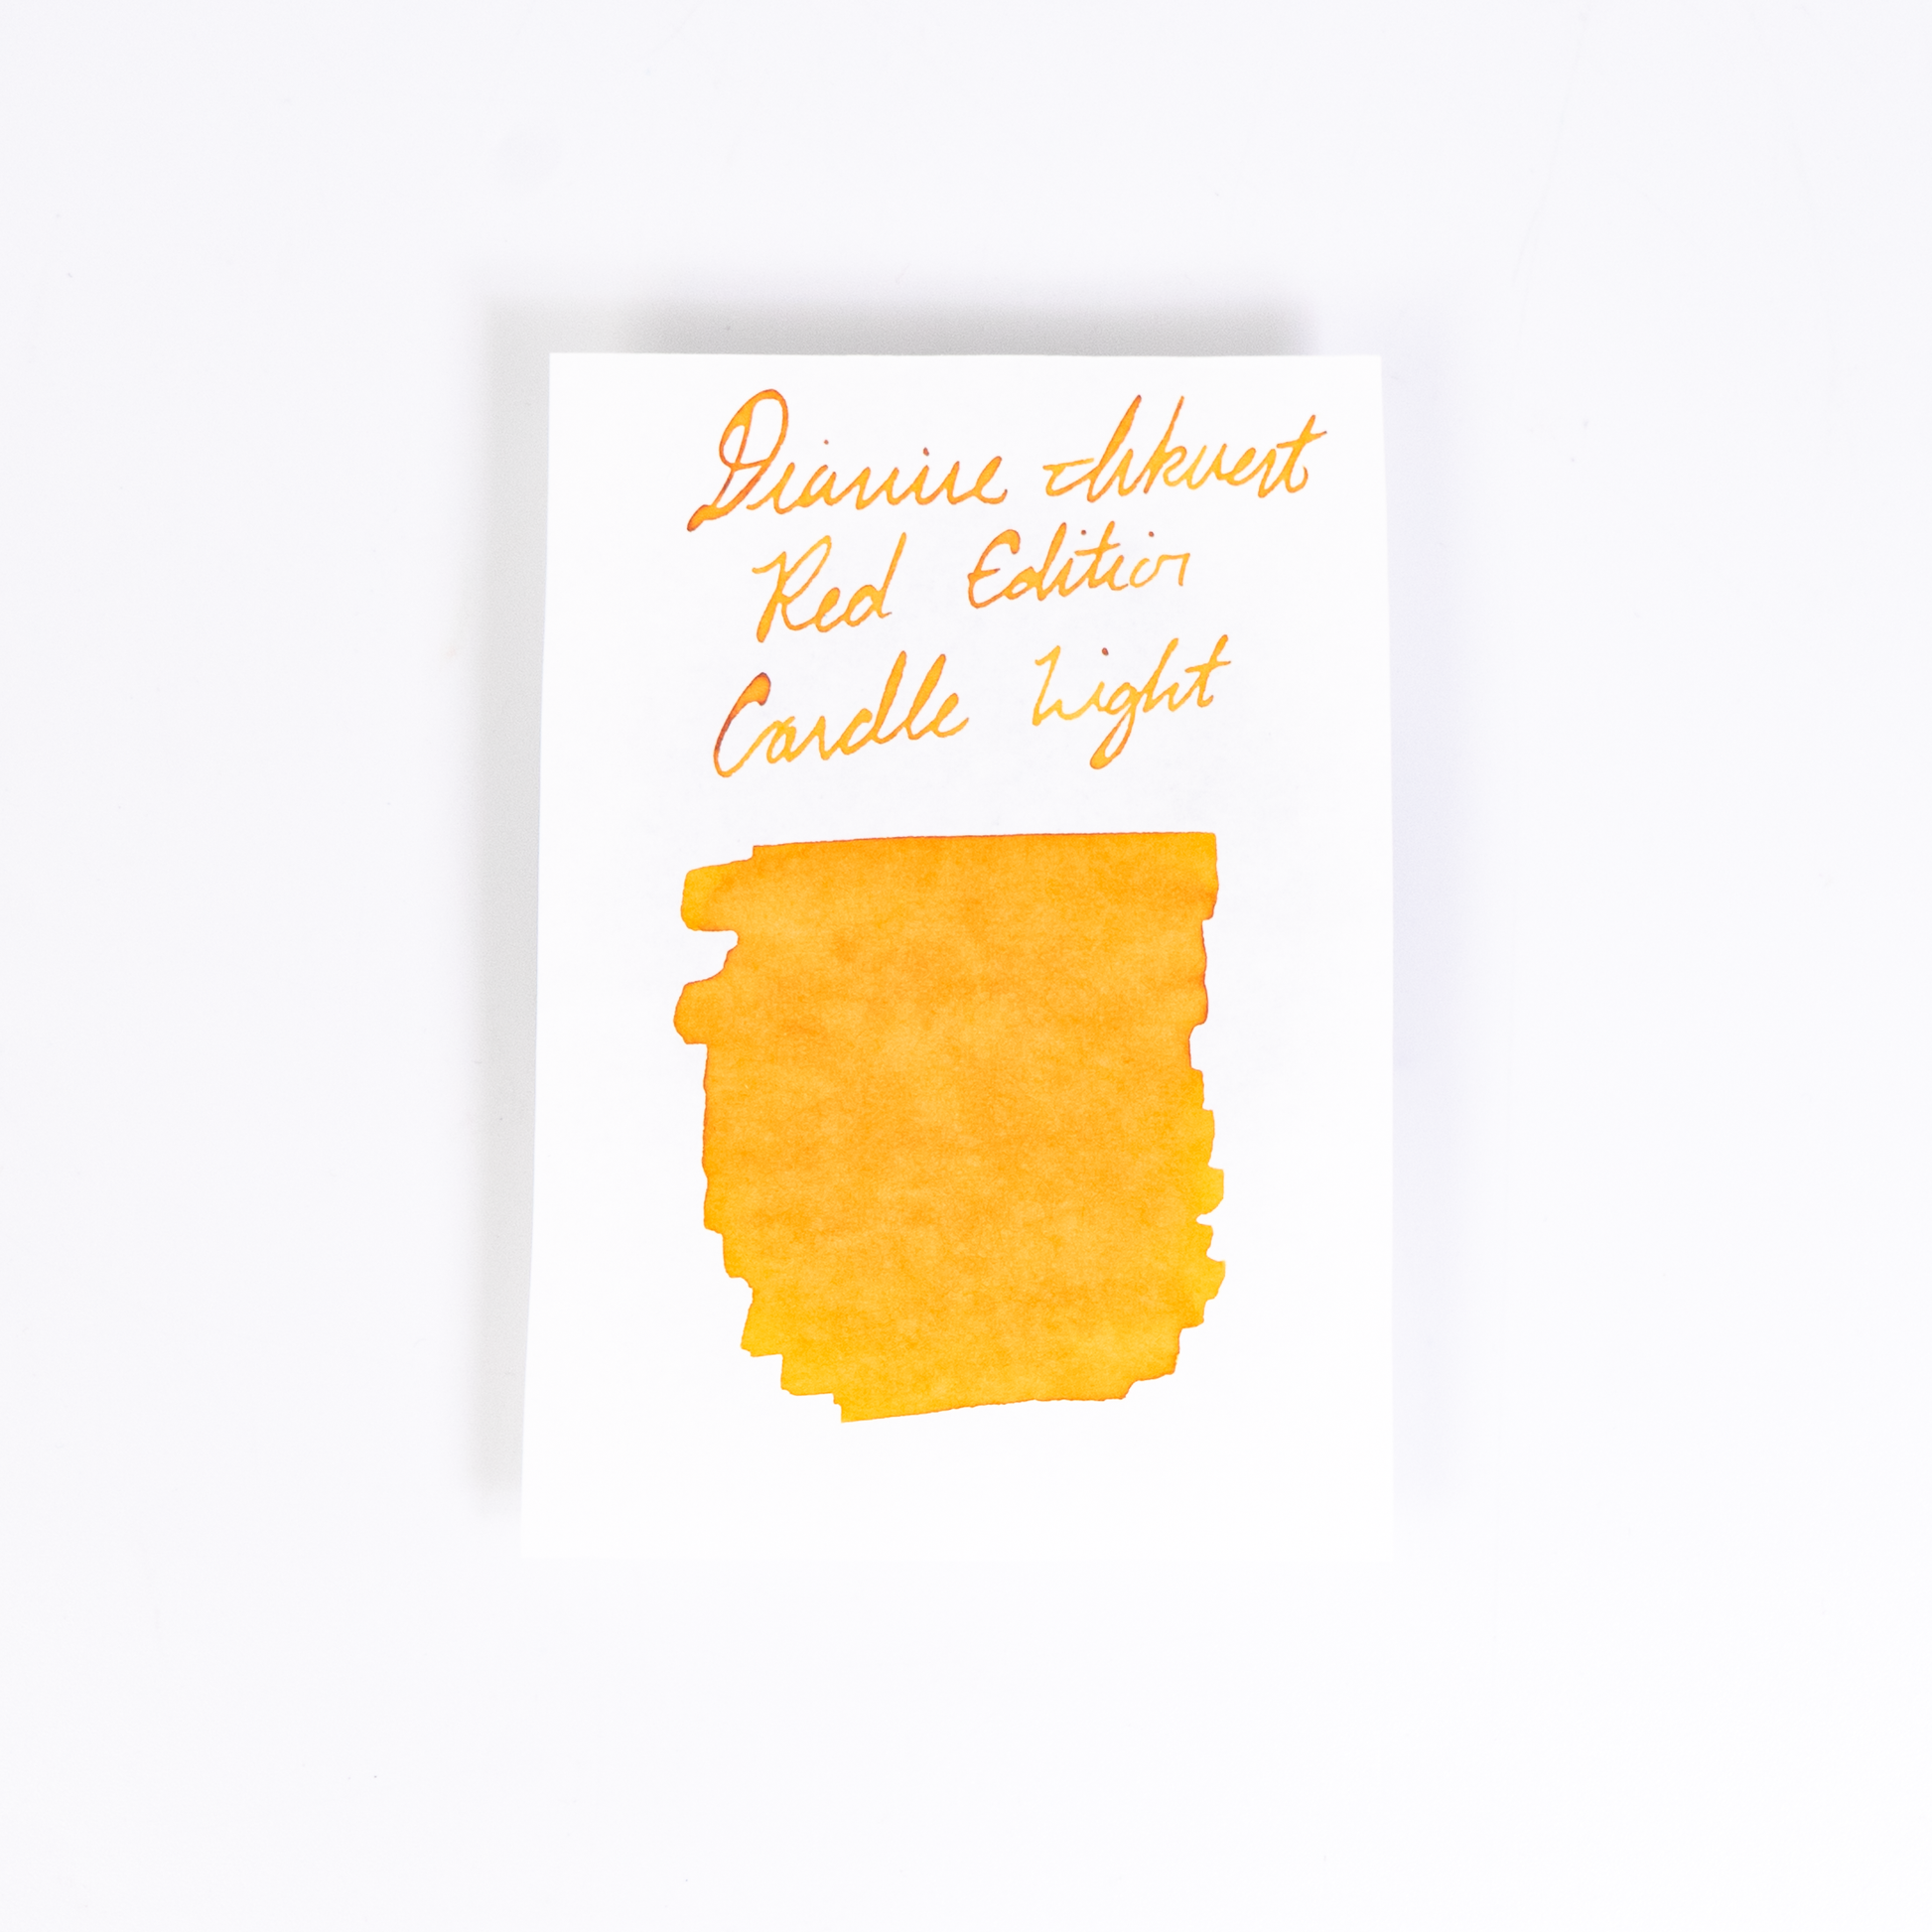 Diamine Inkvent
Red Edition
Candle Light